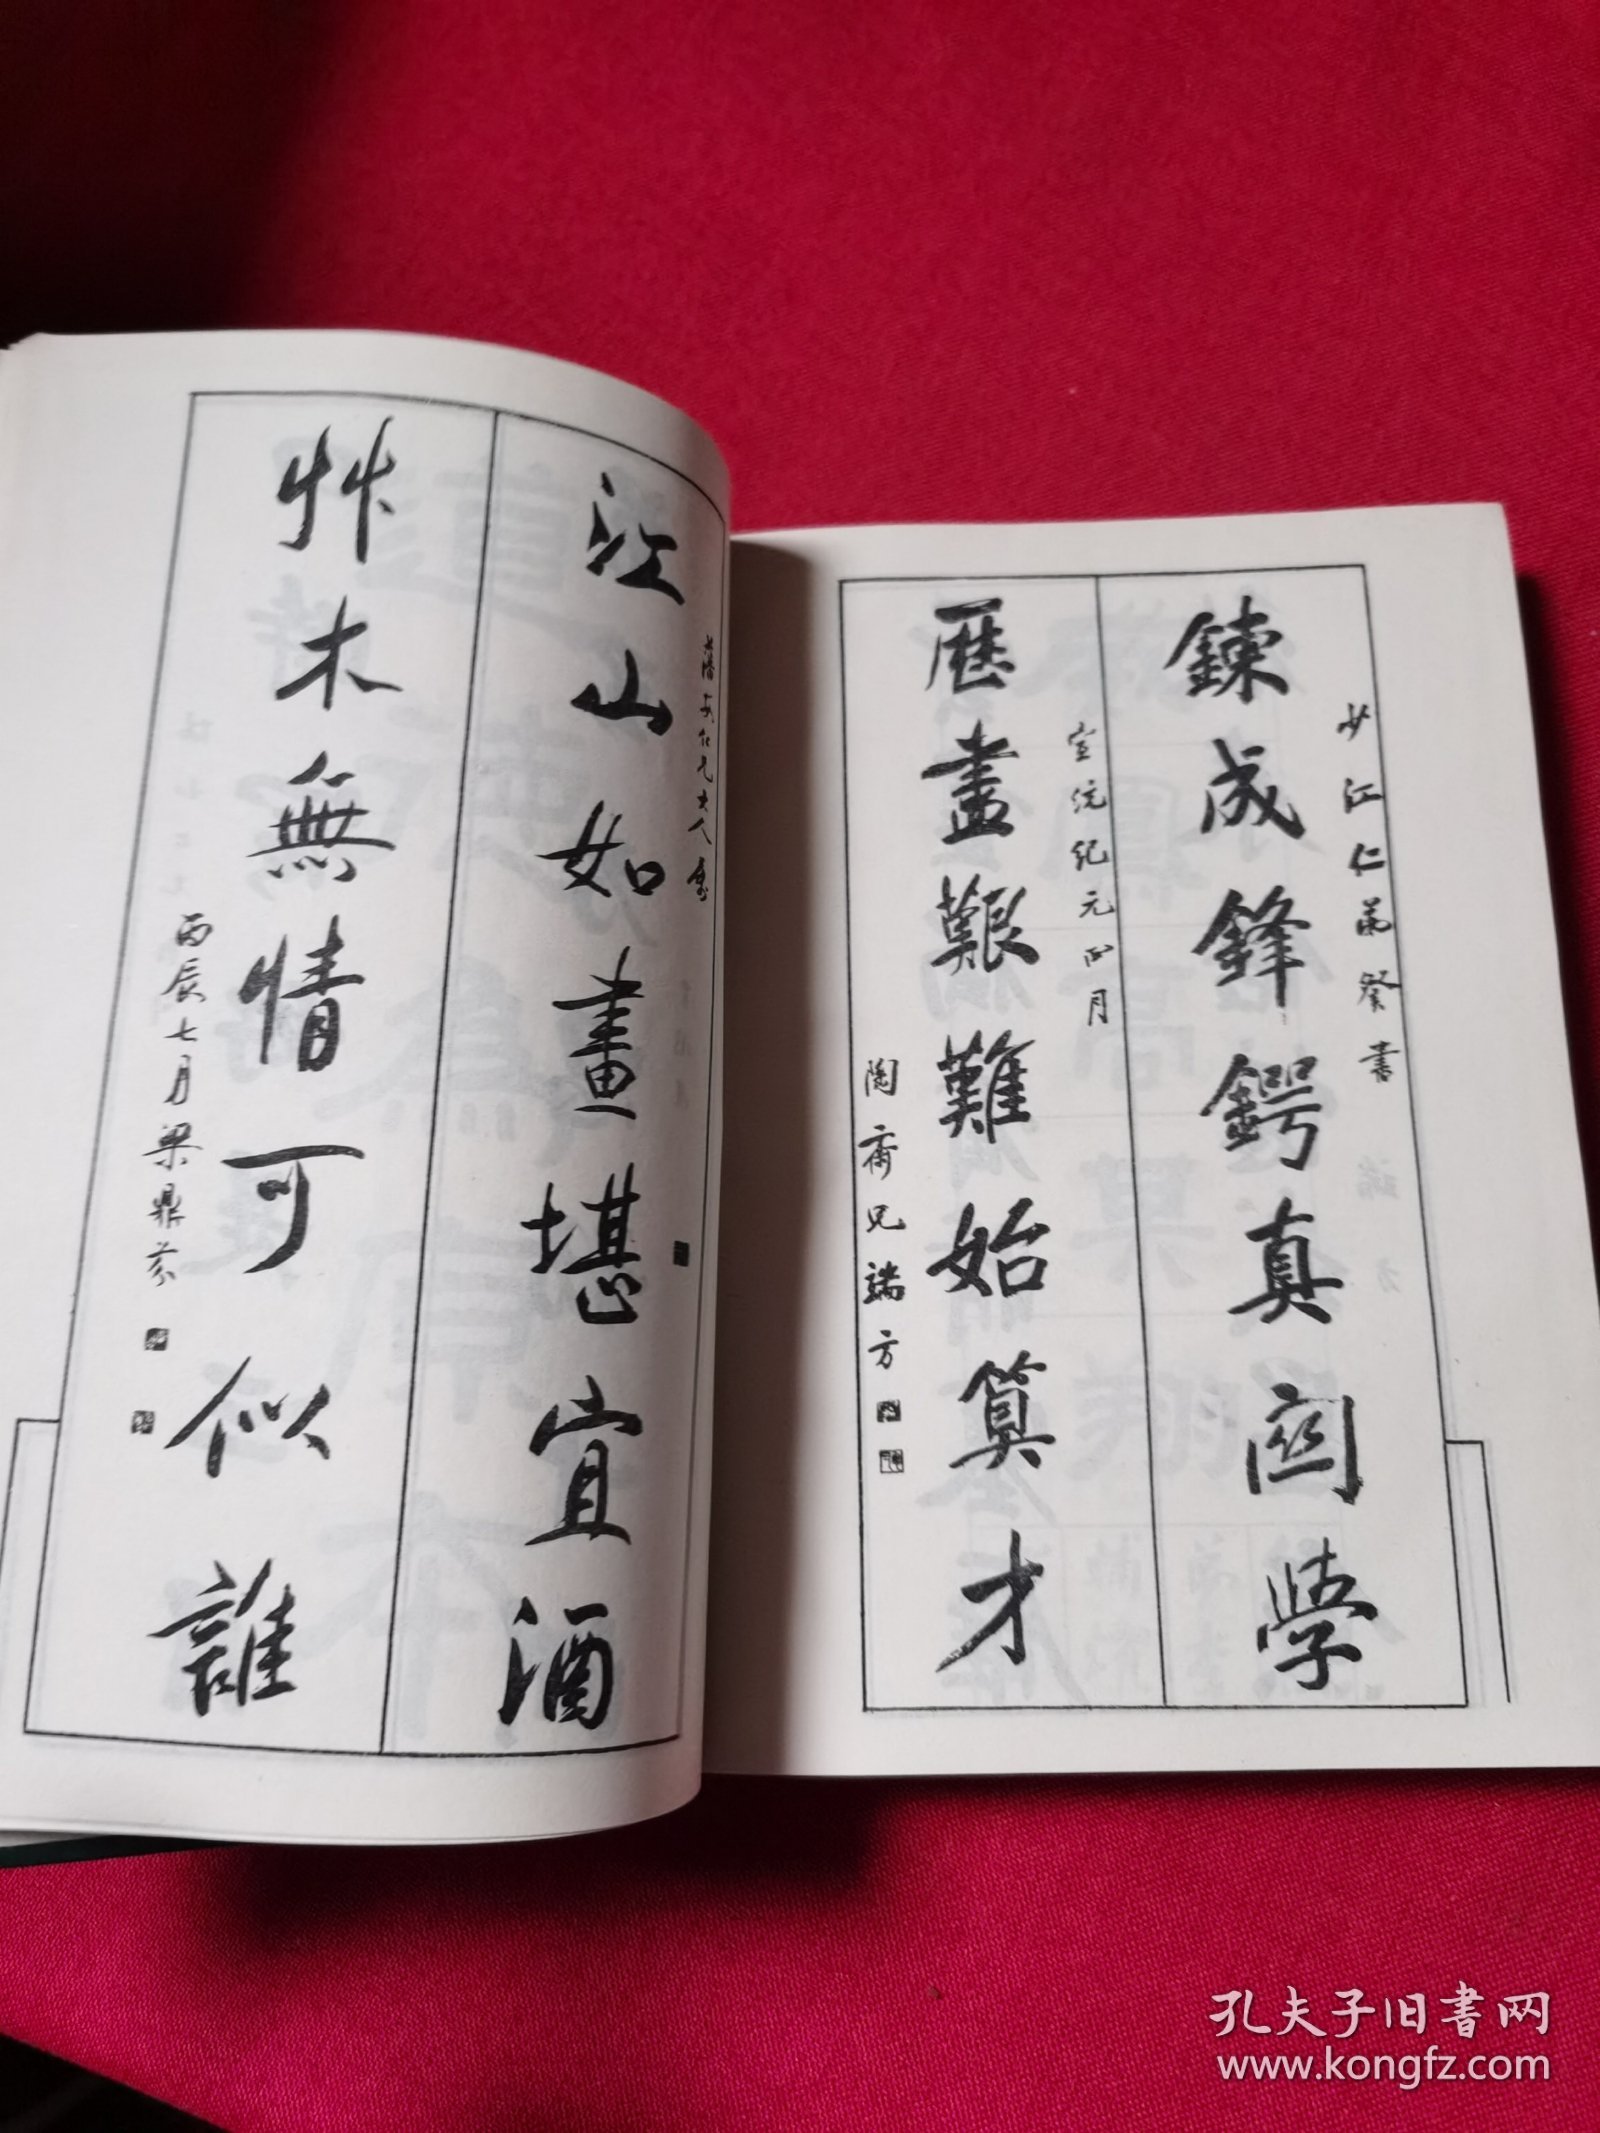 少江仁弟察書
鍊成鋒鍔真問學
宣統紀元正月
歷盡艱難始算才
陶齋兄端方
大人
江山如畫堪宜酒
艸木無情可似誰
丙辰七月梁鼎芬
孔夫子旧书网
www.kongfz.com